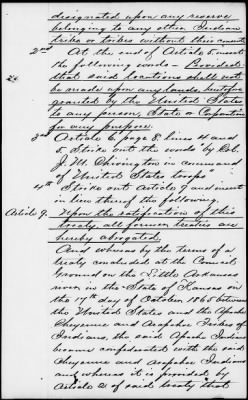 designated upon any reserve
belonging to any other Indian
tribe or tribes without their consent
2nd At the end of Article 2 insert
the following words — Provided
that said locations shall not
be made upon any lands heretofore
granted by the United States
to any person, State or Corporation
for any purpose.
3d Article 6, page 8, lines 4 and
5 Strike out the words by Col.
J. M. Chivington in command
of United States troops"
4th Strike out Article 9 and insert
in lieu thereof the following.
Article 9. Upon the ratification of this
treaty, all former treaties are
hereby abrogated.
And whereas by the terms of a
treaty concluded at the Council
Ground on the Little Arkansas
river in the State of Kansas on
the 17th day of October 1865 between
the United States and the Apache
Cheyenne and Arapahoe Tribes of
Indians, the said Apache Indians
became confederated with the said
Cheyenne and Arapahoe Indians
and whereas it is provided by
article 2 of said treaty that